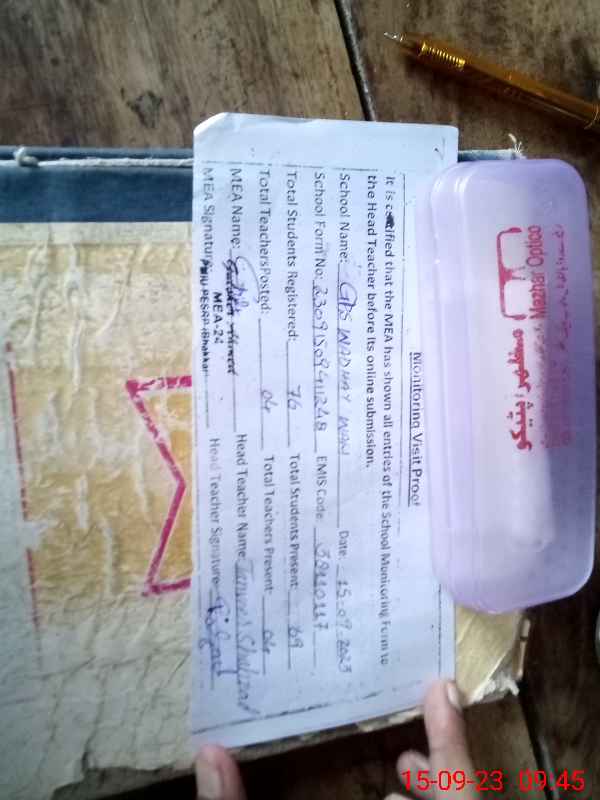 Monitoring Visit Proof
It is certified that the MEA has shown all entries of the School Monitoring Form to
the Head Teacher before its online submission.
School Name: GPS WADHAY WAN Date: 15-09-2023
School Form No: 2309150941248 EMIS Code: 38110117
Total Students Registered: 76 Total Students Present: 69
Total Teachers Posted: 04 Total Teachers Present: 04
MEA Name: Ahmed Head Teacher Name: Tanveer Shahzad
MEA Signature: Head Teacher Signature:
MEA-24
PMIU PESRP-Bhakkar
Meezan Optico
15-09-23 09:45